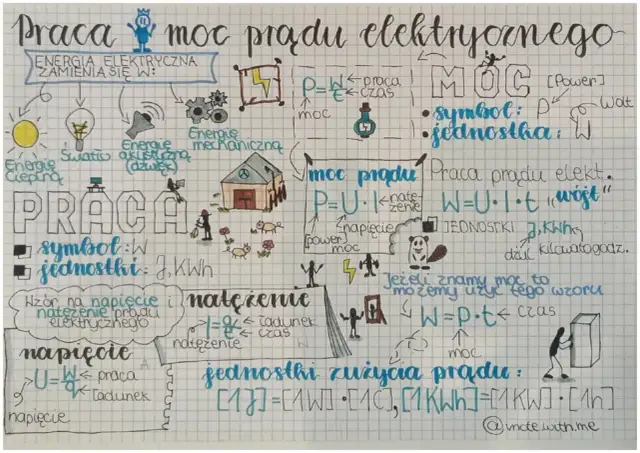 Praca i moc prądu elektrycznego
ENERGIA ELEKTRYCZNA
ZAMIENIA SIĘ W:
Energię
cieplną
Światło
Energię
akustyczną
(dźwięk)
Energię
mechaniczną
P=W/t
praca
czas
moc
MOC [Power]
symbol: P
jednostka: W
Wat
PRACA
symbol: W
jednostki: J, KWh
moc prądu
P=U·I
natężenie
napięcie
power
moc
Praca prądu elekt.
W=U·I·t "wójt"
JEDNOSTKI J, KWh
dżul kilowatogodz.
Jeżeli znamy moc to
możemy użyć tego wzoru
W=P·t
czas
moc
Wzór na napięcie i
natężenie prądu
elektrycznego
natężenie
I=q/t
ładunek
czas
natężenie
napięcie
U=W/q
praca
ładunek
napięcie
jednostki zużycia prądu:
[1J]=[1W]·[1C], [1KWh]=[1KW]·[1h]
@note.with.me